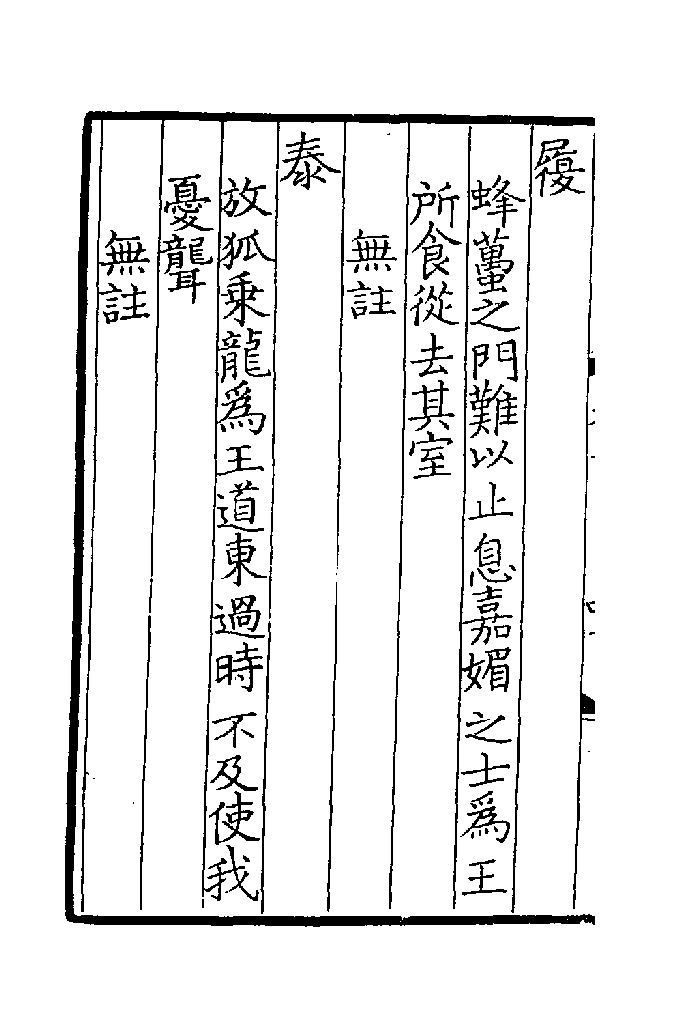 履
蜂蠆之門難以止息嘉媚之士爲王
所食從去其室
無註
泰
放狐乗龍爲王道東過時不及使我
憂聾
無註